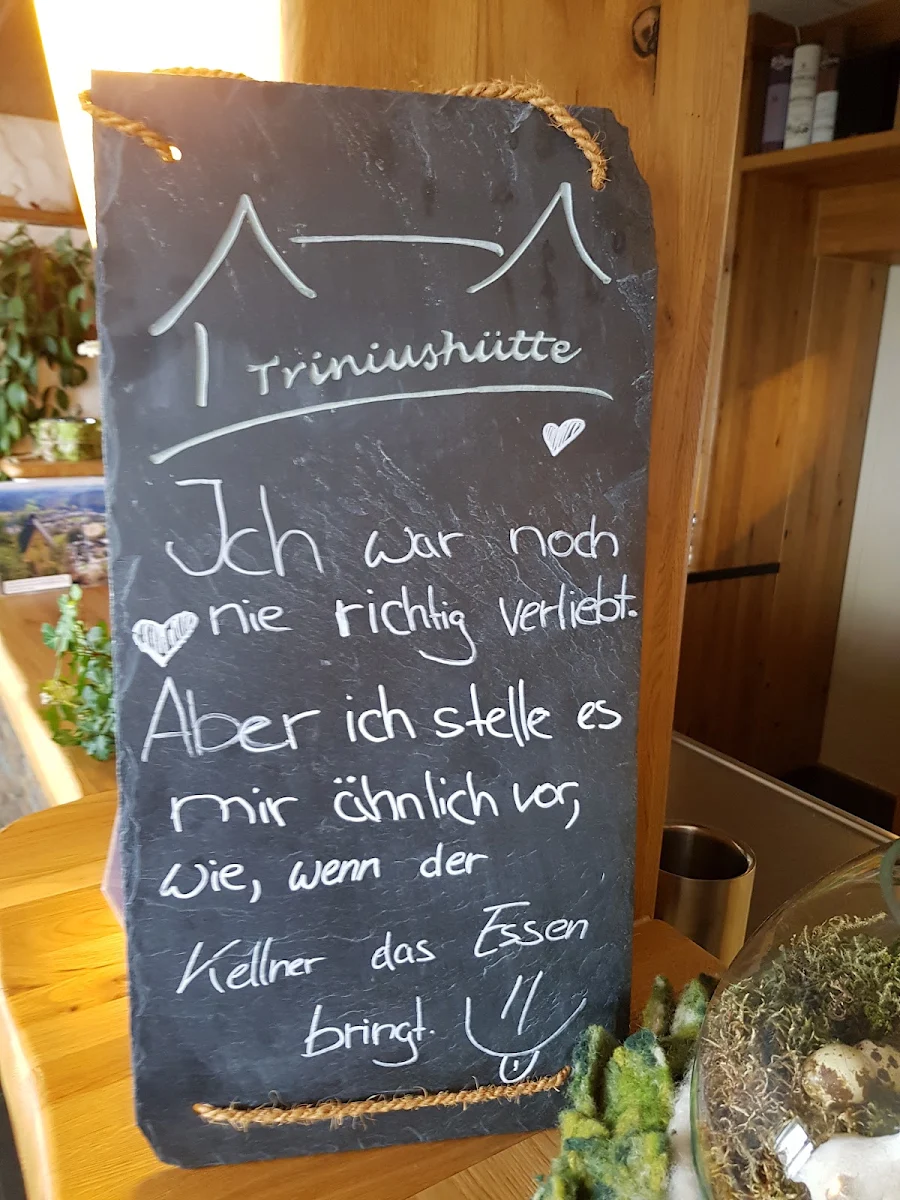 Triniushütte
Ich war noch
nie richtig verliebt.
Aber ich stelle es
mir ähnlich vor,
wie, wenn der
Kellner das Essen
bringt.